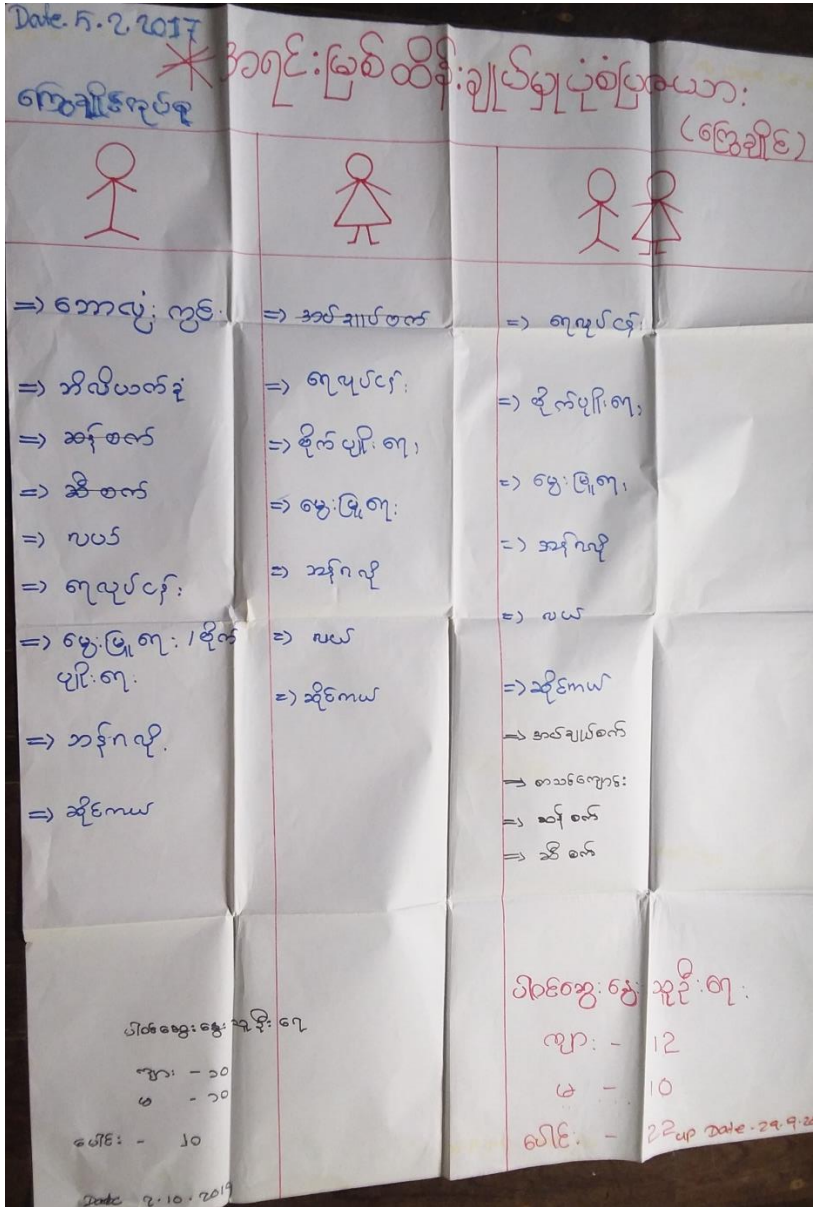 Date. 5.2.2017
အရင်းမြစ်ထိန်းချုပ်မှုပုံစံပြဇယား
(ကြွေချိုင်)
=> ဘောလုံးကွင်း
=> ဘိလိယက်ခုံ
=> ဆန်စက်
=> ဆီစက်
=> လယ်
=> ရေလုပ်ငန်း
=> မွေးမြူရေး / စိုက်
ပျိုးရေး
=> ဘန်ဂလို
=> ဆိုင်ကယ်
=> အပ်ချုပ်စက်
=> ရေလုပ်ငန်း
=> စိုက်ပျိုးရေး
=> မွေးမြူရေး
=> ဘန်ဂလို
=> လယ်
=> ဆိုင်ကယ်
=> ရေလုပ်ငန်း
=> စိုက်ပျိုးရေး
=> မွေးမြူရေး
=> ဘန်ဂလို
=> လယ်
=> ဆိုင်ကယ်
=> အပ်ချုပ်စက်
=> စာသင်ကျောင်း
=> ဆန်စက်
=> ဆီစက်
ပါဝင်ဆွေးနွေးသူဦးရေ
ကျား - ၁၀
မ - ၁၀
ပေါင်း - ၂၀
Date 2.10.2019
ပါဝင်ဆွေးနွေးသူဦးရေ
ကျား - 12
မ - 10
ပေါင်း - 22
up Date.